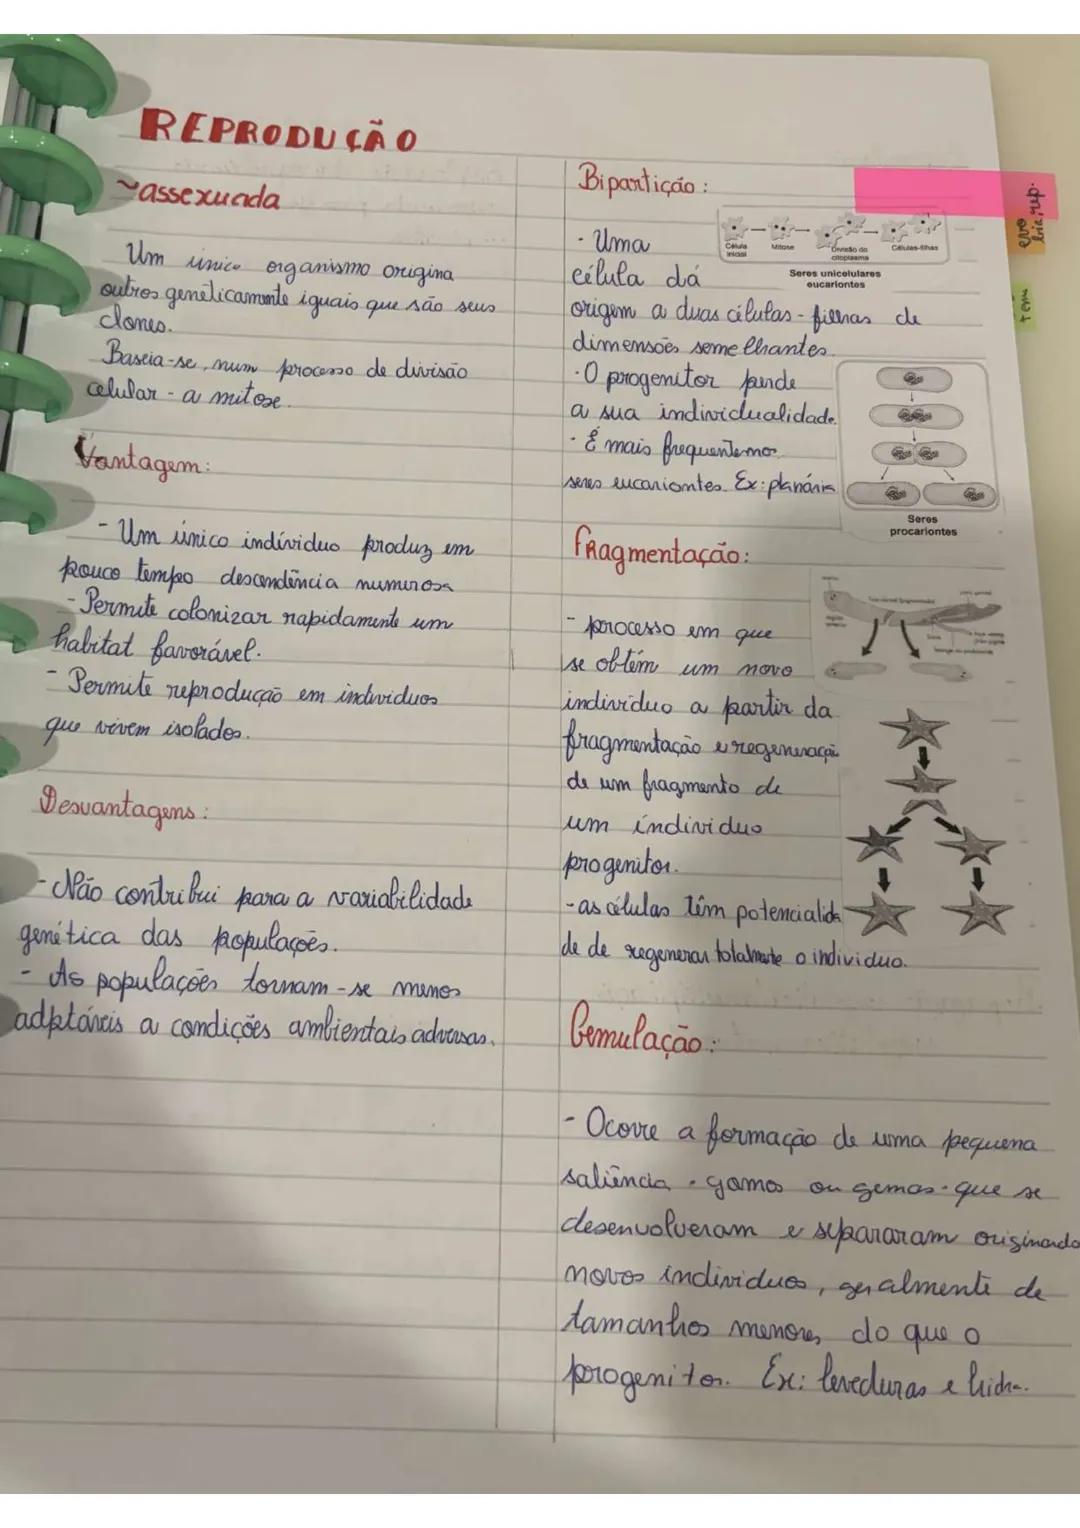 REPRODUÇÃO
~assexuada
Um único organismo origina
outros genéticamente iguais que são seus
clones.
Baseia-se, num processo de divisão
celular - a mitose.
Vantagem:
- Um único indivíduo produz em
pouco tempo descendência numerosa
- Permite colonizar rapidamente um
habitat favorável.
- Permite reprodução em individuos
que vivem isolados.
Desvantagens:
- Não contribui para a variabilidade
genética das populações.
- As populações tornam-se menos
adptáveis a condições ambientais adversas.
Bipartição:
Célula inicial
Mitose
Divisão do citoplasma
Células-filhas
Seres unicelulares
eucariontes
· Uma
célula dá
origem a duas células-filhas de
dimensões semelhantes.
· O progenitor perde
a sua individualidade.
· É mais frequente nos
seres eucariontes. Ex: planária
Seres
procariontes
Fragmentação:
- processo em que
se obtém um novo
indivíduo a partir da
fragmentação e regeneração
de um fragmento de
um indivíduo
progenitor.
- as células têm potencialida
de de regenerar totalmente o individuo.
Gemulação:
- Ocorre a formação de uma pequena
saliência - gomos ou gemas - que se
desenvolveram e separaram originando
novos individuos, geralmente de
tamanhos menores do que o
progenitor. Ex: leveduras e hidra.